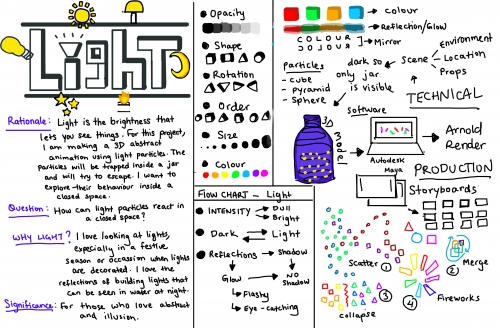 Light
Rationale: Light is the brightness that
lets you see things. For this project,
I am making a 3D abstract
animation using light particles. The
particles will be trapped inside a jar
and will try to escape. I want to
explore their behaviour inside a
closed space.
Question: How can light particles react in
a closed space?
WHY LIGHT? I love looking at lights,
especially in a festive
season or occassion when lights
are decorated. I love the
reflections of building lights that
can be seen in water at night.
Significance: For those who love abstract
and illusion.
Opacity
Shape
Rotation
Order
Size
Colour
FLOW CHART - Light
INTENSITY
Dull
Bright
Dark
Light
Reflections
Shadow
Glow
NO
SHADOW
Flashy
Eye-catching
Colour
Reflection/Glow
COLOUR
Mirror
Particles
- Cube
- Pyramid
- Sphere
dark so
only jar
is visible
Scene
Environment
Location
Props
TECHNICAL
Software
3D
model
Autodesk
Maya
Arnold
Render
PRODUCTION
Storyboards
Scatter 1
2
Merge
3
collapse
4
Fireworks